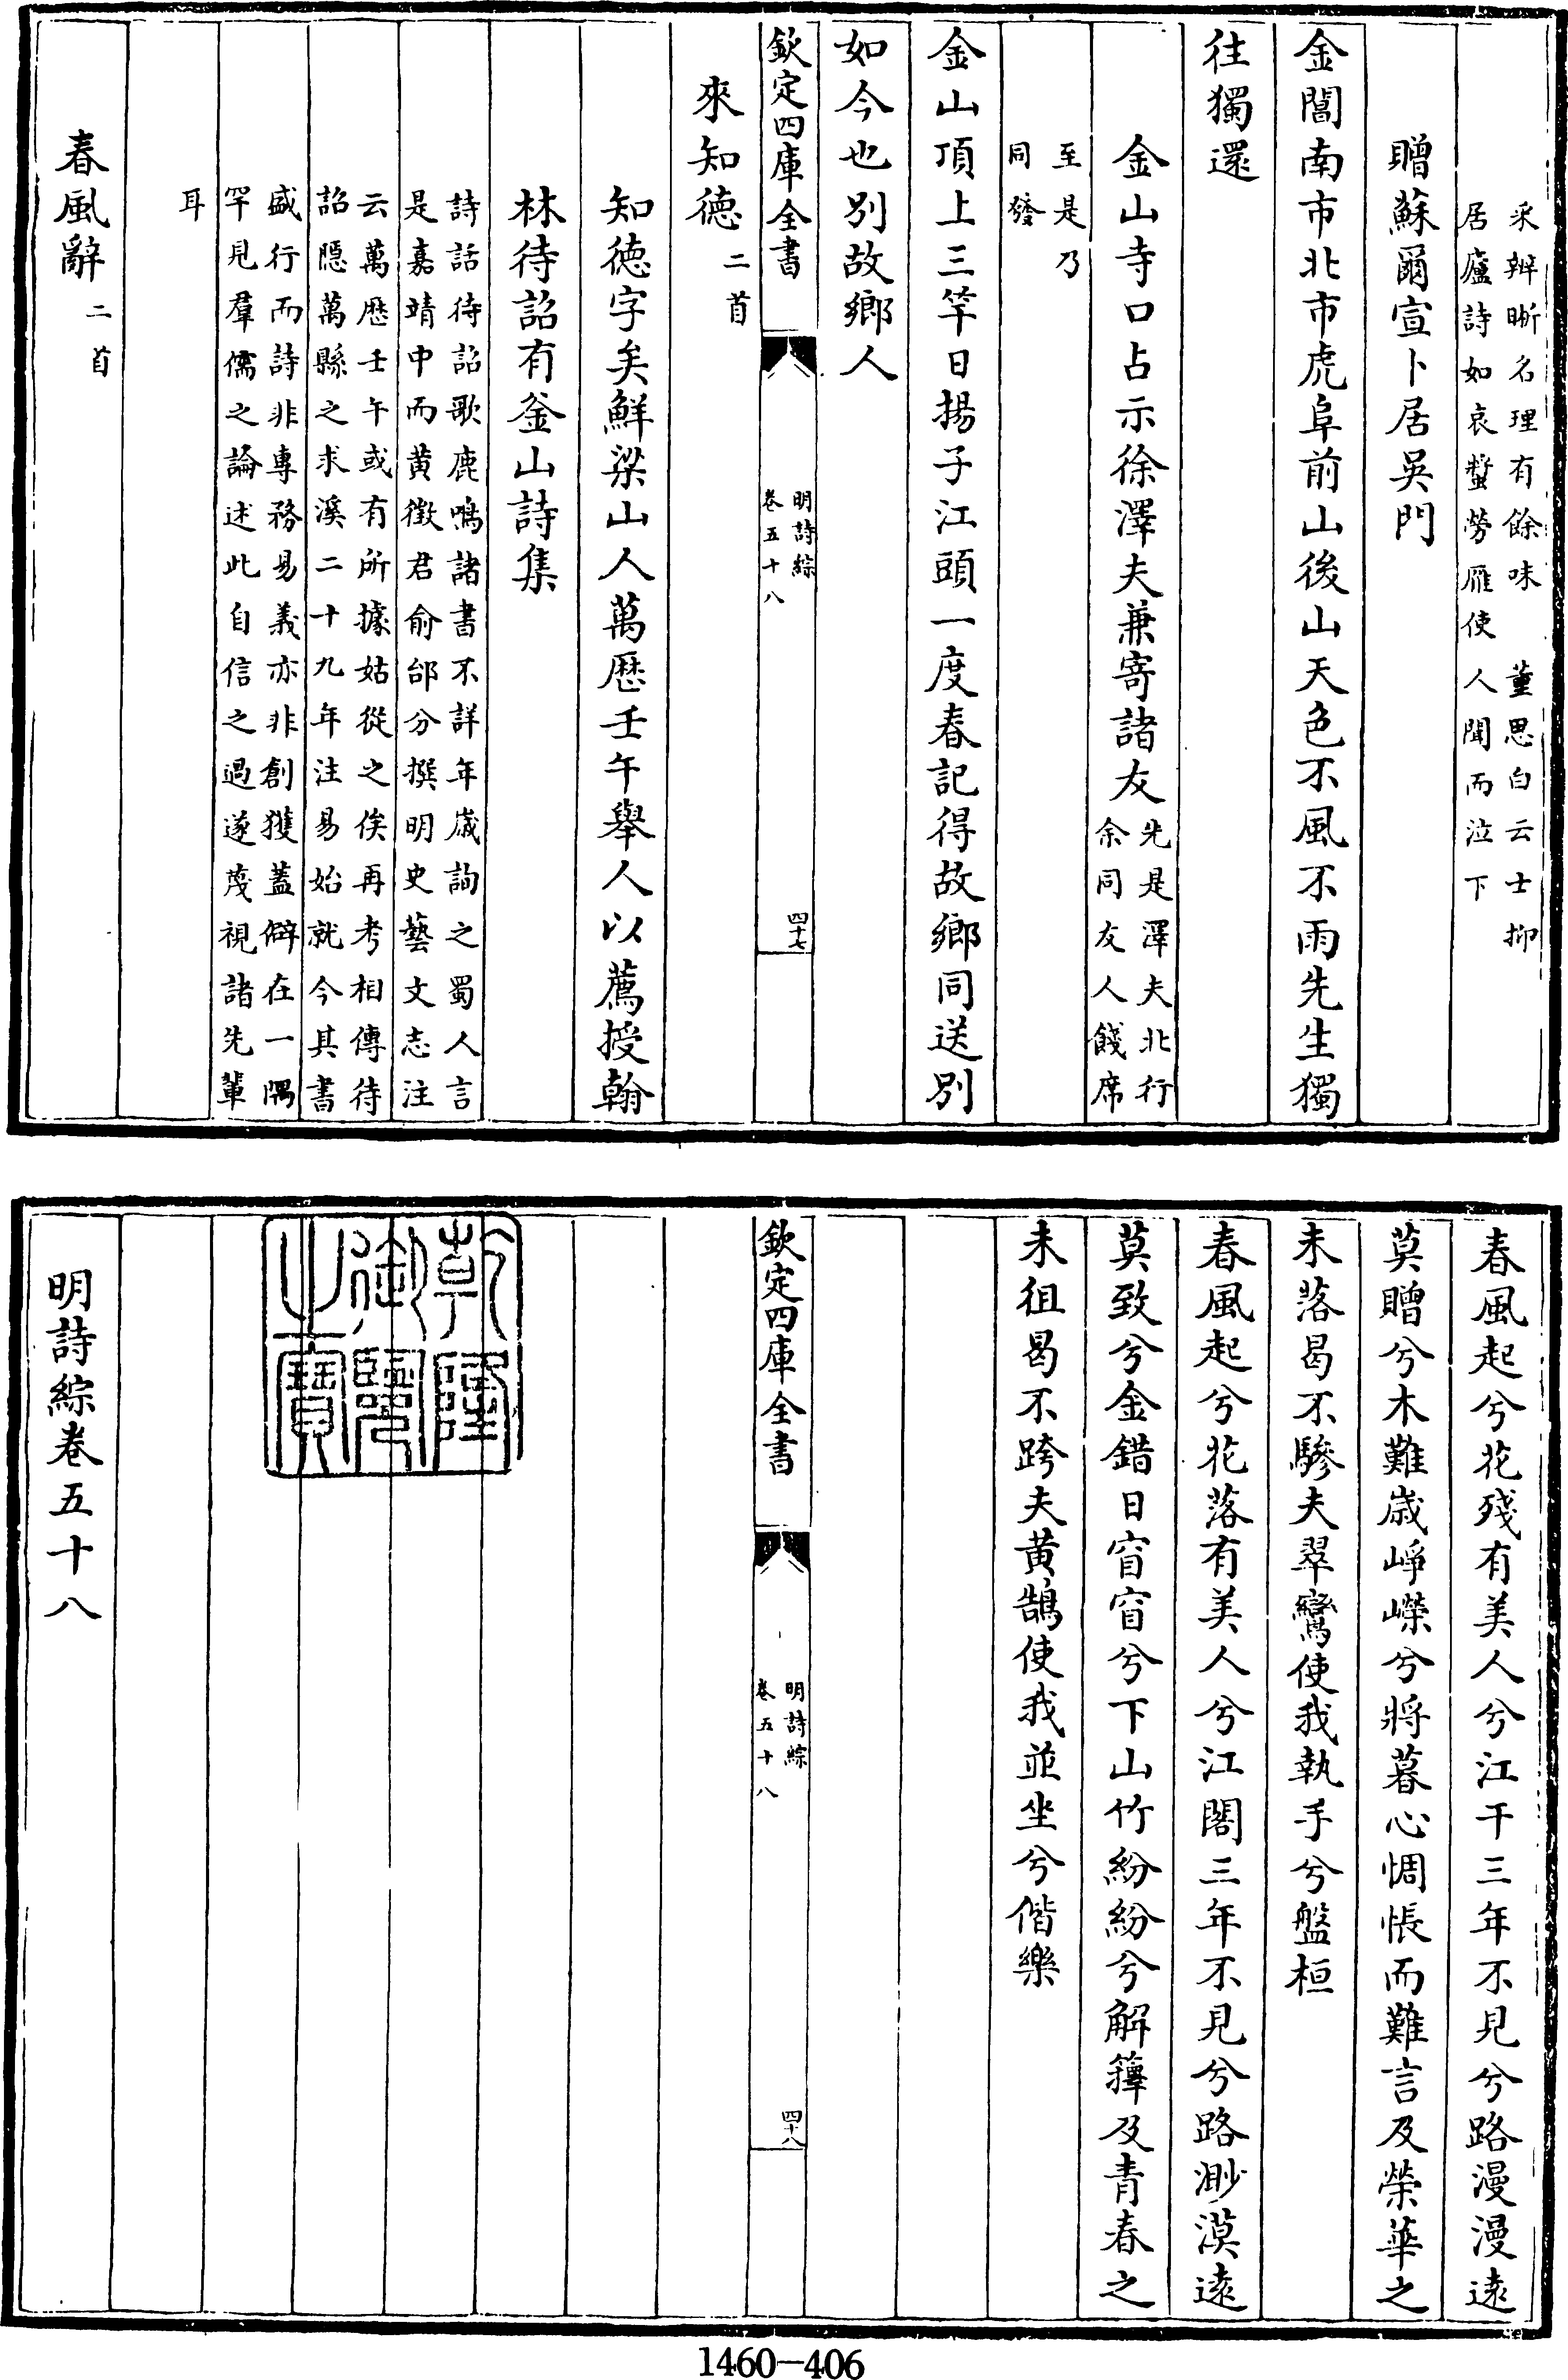 采辨晰名理有餘味　董思白云士抑
居廬詩如哀蜇勞雁使人聞而泣下
贈蘇爾宣卜居吳門
金閶南市北市虎阜前山後山天色不風不雨先生獨
往獨還
金山寺口占示徐澤夫兼寄諸友
先是澤夫北行
余同友人餞席
至是乃
同發
金山頂上三竿日揚子江頭一度春記得故鄉同送別
如今也別故鄉人
欽定四庫全書
明詩綜
卷五十八
四十七
來知德二首
知德字矣鮮梁山人萬歷壬午舉人以薦授翰
林待詔有釜山詩集
詩話待詔歌鹿鳴諸書不詳年歲詢之蜀人言
是嘉靖中而黃徵君俞邰分撰明史藝文志注
云萬歷壬午或有所據姑從之俟再考相傳待
詔隱萬縣之求溪二十九年注易始就今其書
盛行而詩非專務易義亦非創獲蓋僻在一隅
罕見羣儒之論述此自信之過遂蔑視諸先輩
耳
春風辭二首
春風起兮花殘有美人兮江干三年不見兮路漫漫遠
莫贈兮木難歲崢嶸兮將暮心惆悵而難言及榮華之
未落曷不驂夫翠鸞使我執手兮盤桓
春風起兮花落有美人兮江閣三年不見兮路渺漠遠
莫致兮金錯日窅窅兮下山竹紛紛兮解籜及青春之
未徂曷不跨夫黃鵠使我並坐兮偕樂
欽定四庫全書
明詩綜
卷五十八
四十八
乾隆
御覽
之寶
明詩綜卷五十八
1460-406